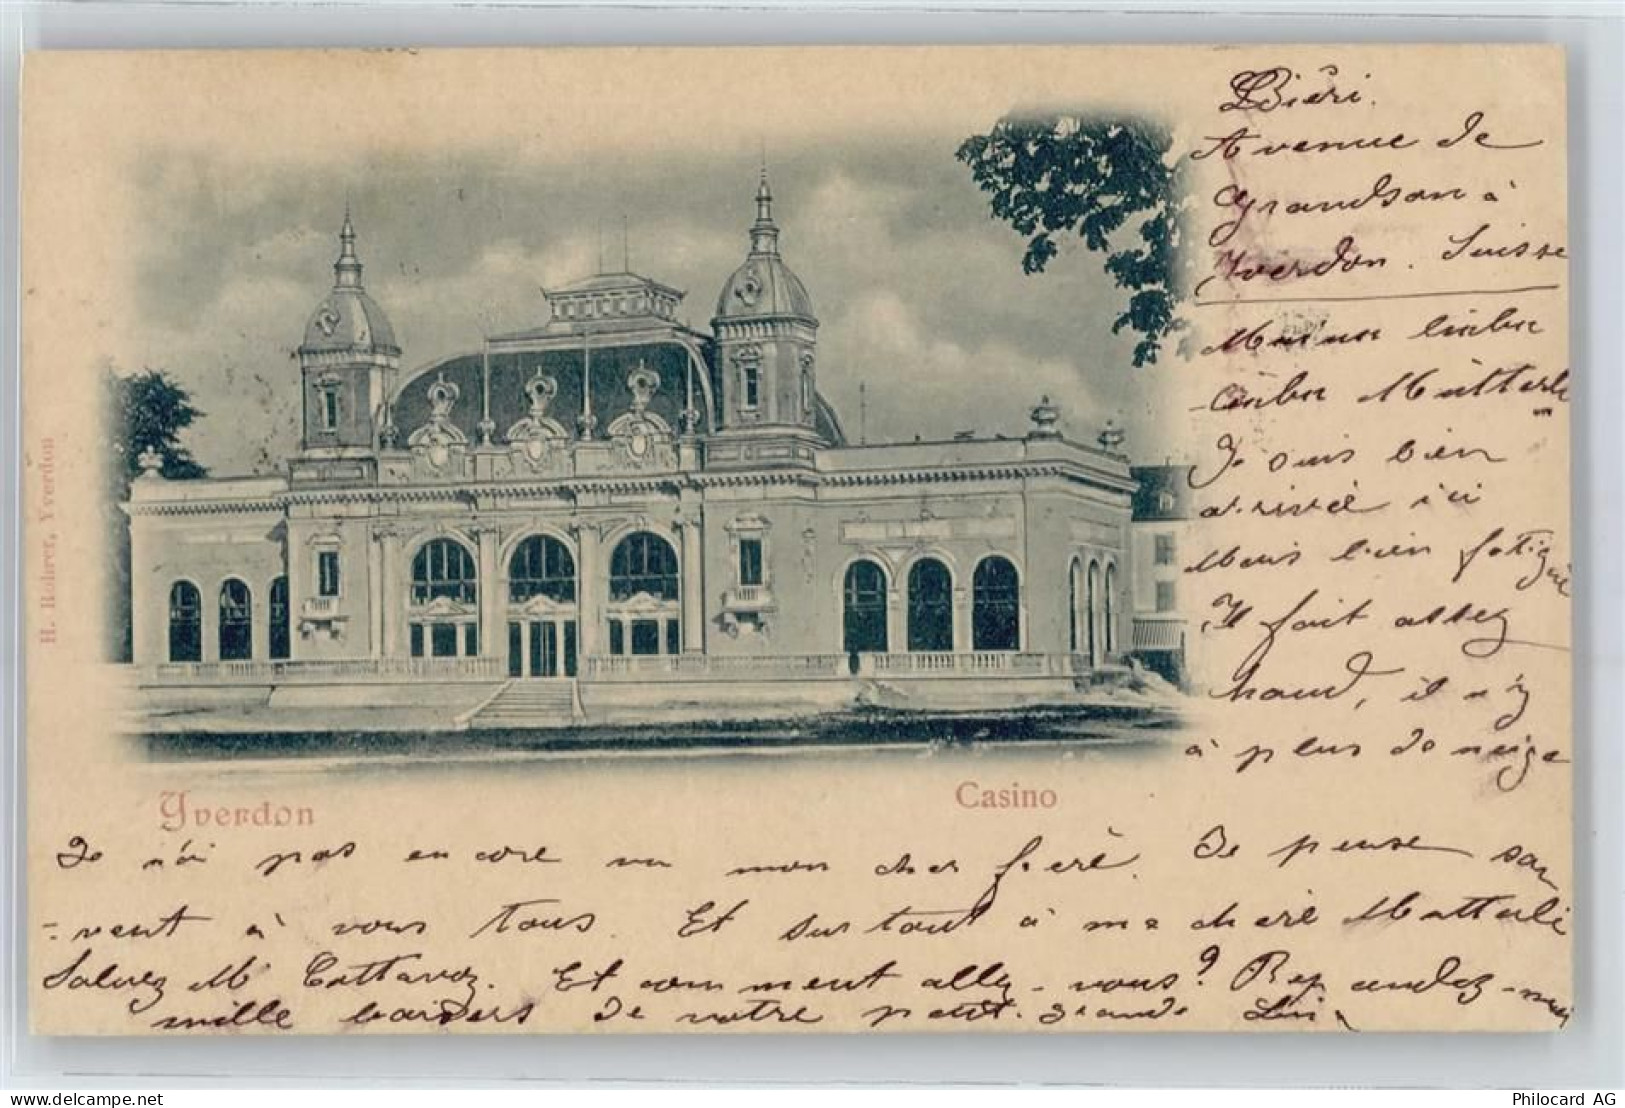 Biéri.
Avenue de
Grandson à
Yverdon. Suisse
Meinen lieben
lieben Mütterli
Je suis bien
arrivé ici
Mais bien fatigué
Il fait assez
chaud, il n'y
à plus de neige
H. Rohrer, Yverdon
Yverdon
Casino
Je n'ai pas encore vu mon cher frère. Je pense sou
-vent à vous tous. Et surtout à ma chère Mutterli
Saluez M Cattavoz. Et comment allez-vous? Rependez-moi
mille baisers de votre petit. grande
delcampe.net
Philocard AG